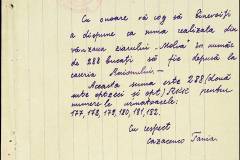 Cu onoare vă rog să binevoiți
a dispune ca suma realizata din
vânzarea ziarului „Moldva" în număr
de 288 bucăți să fie depusă la
caseria Raionului.—
Aceasta suma este 288 (două
sute optzeci și opt) RKK pentru
numerele urmatoarele:
177, 178, 179, 180, 181, 182.
Cu respect
Cazacenco Tania.